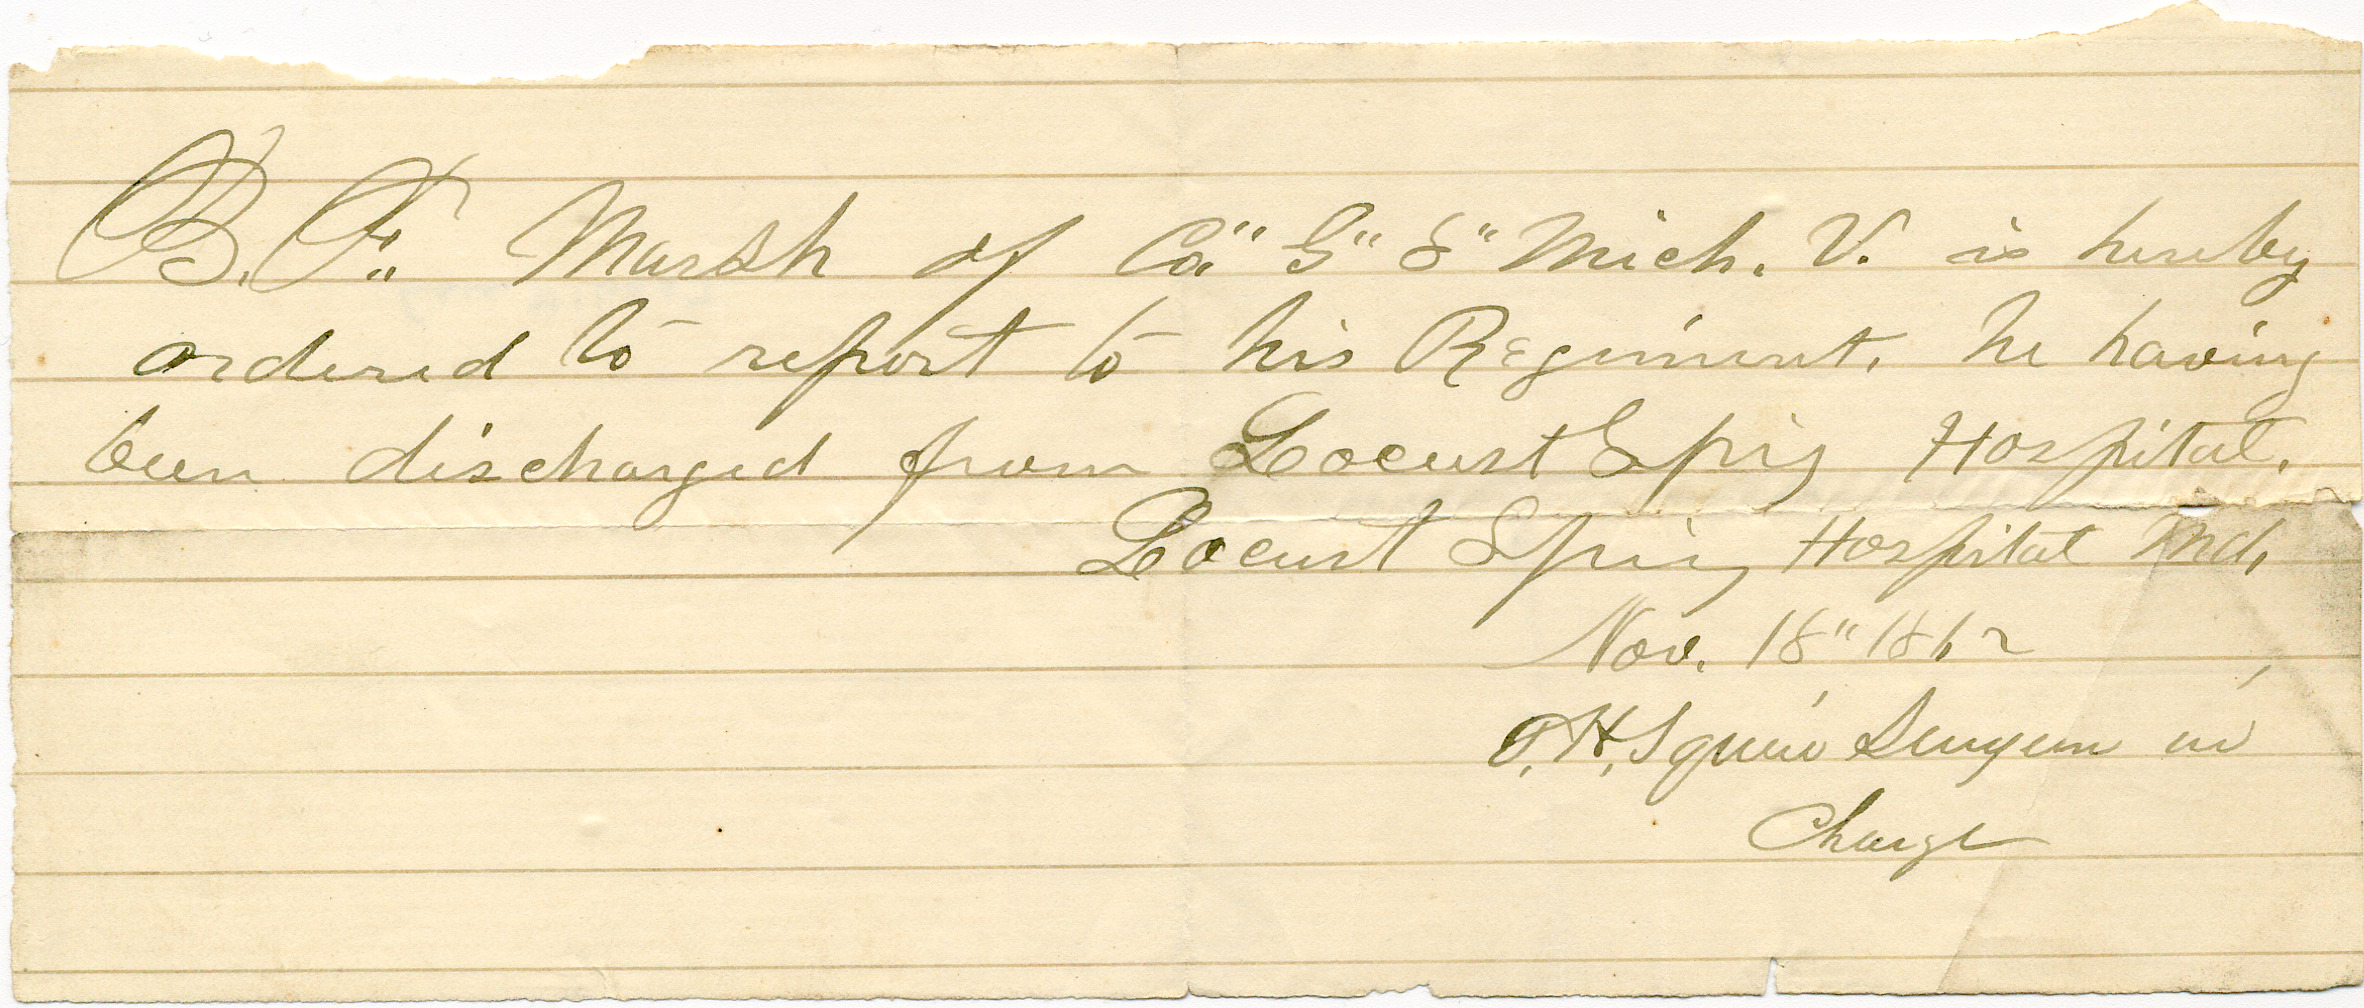 B. F. Marsh of Co. "G" 8" Mich. V. is hereby
ordered to report to his Regiment. he having
been discharged from Locust Sprig Hospital.
Locust Sprig Hospital Md.
Nov. 18" 1862
T. H. Squire Surgeon in
Charge